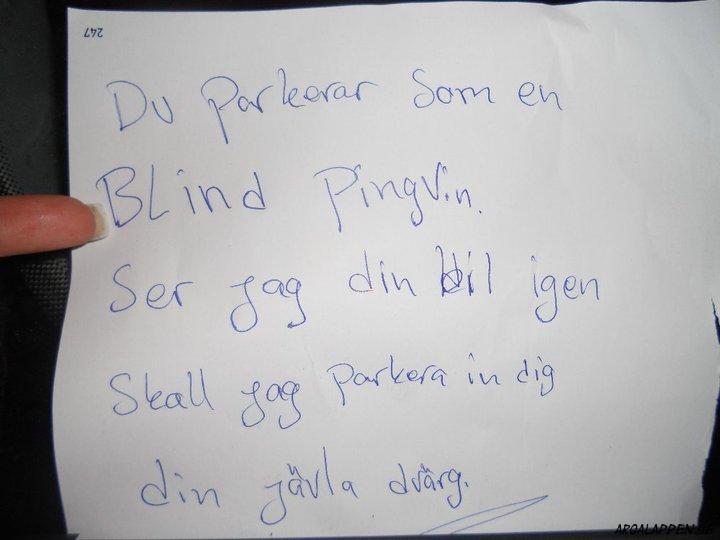 247
Du parkerar som en
Blind Pingvin.
Ser jag din bil igen
Skall jag parkera in dig
din jävla dvärg.
ARGALAPPEN.SE